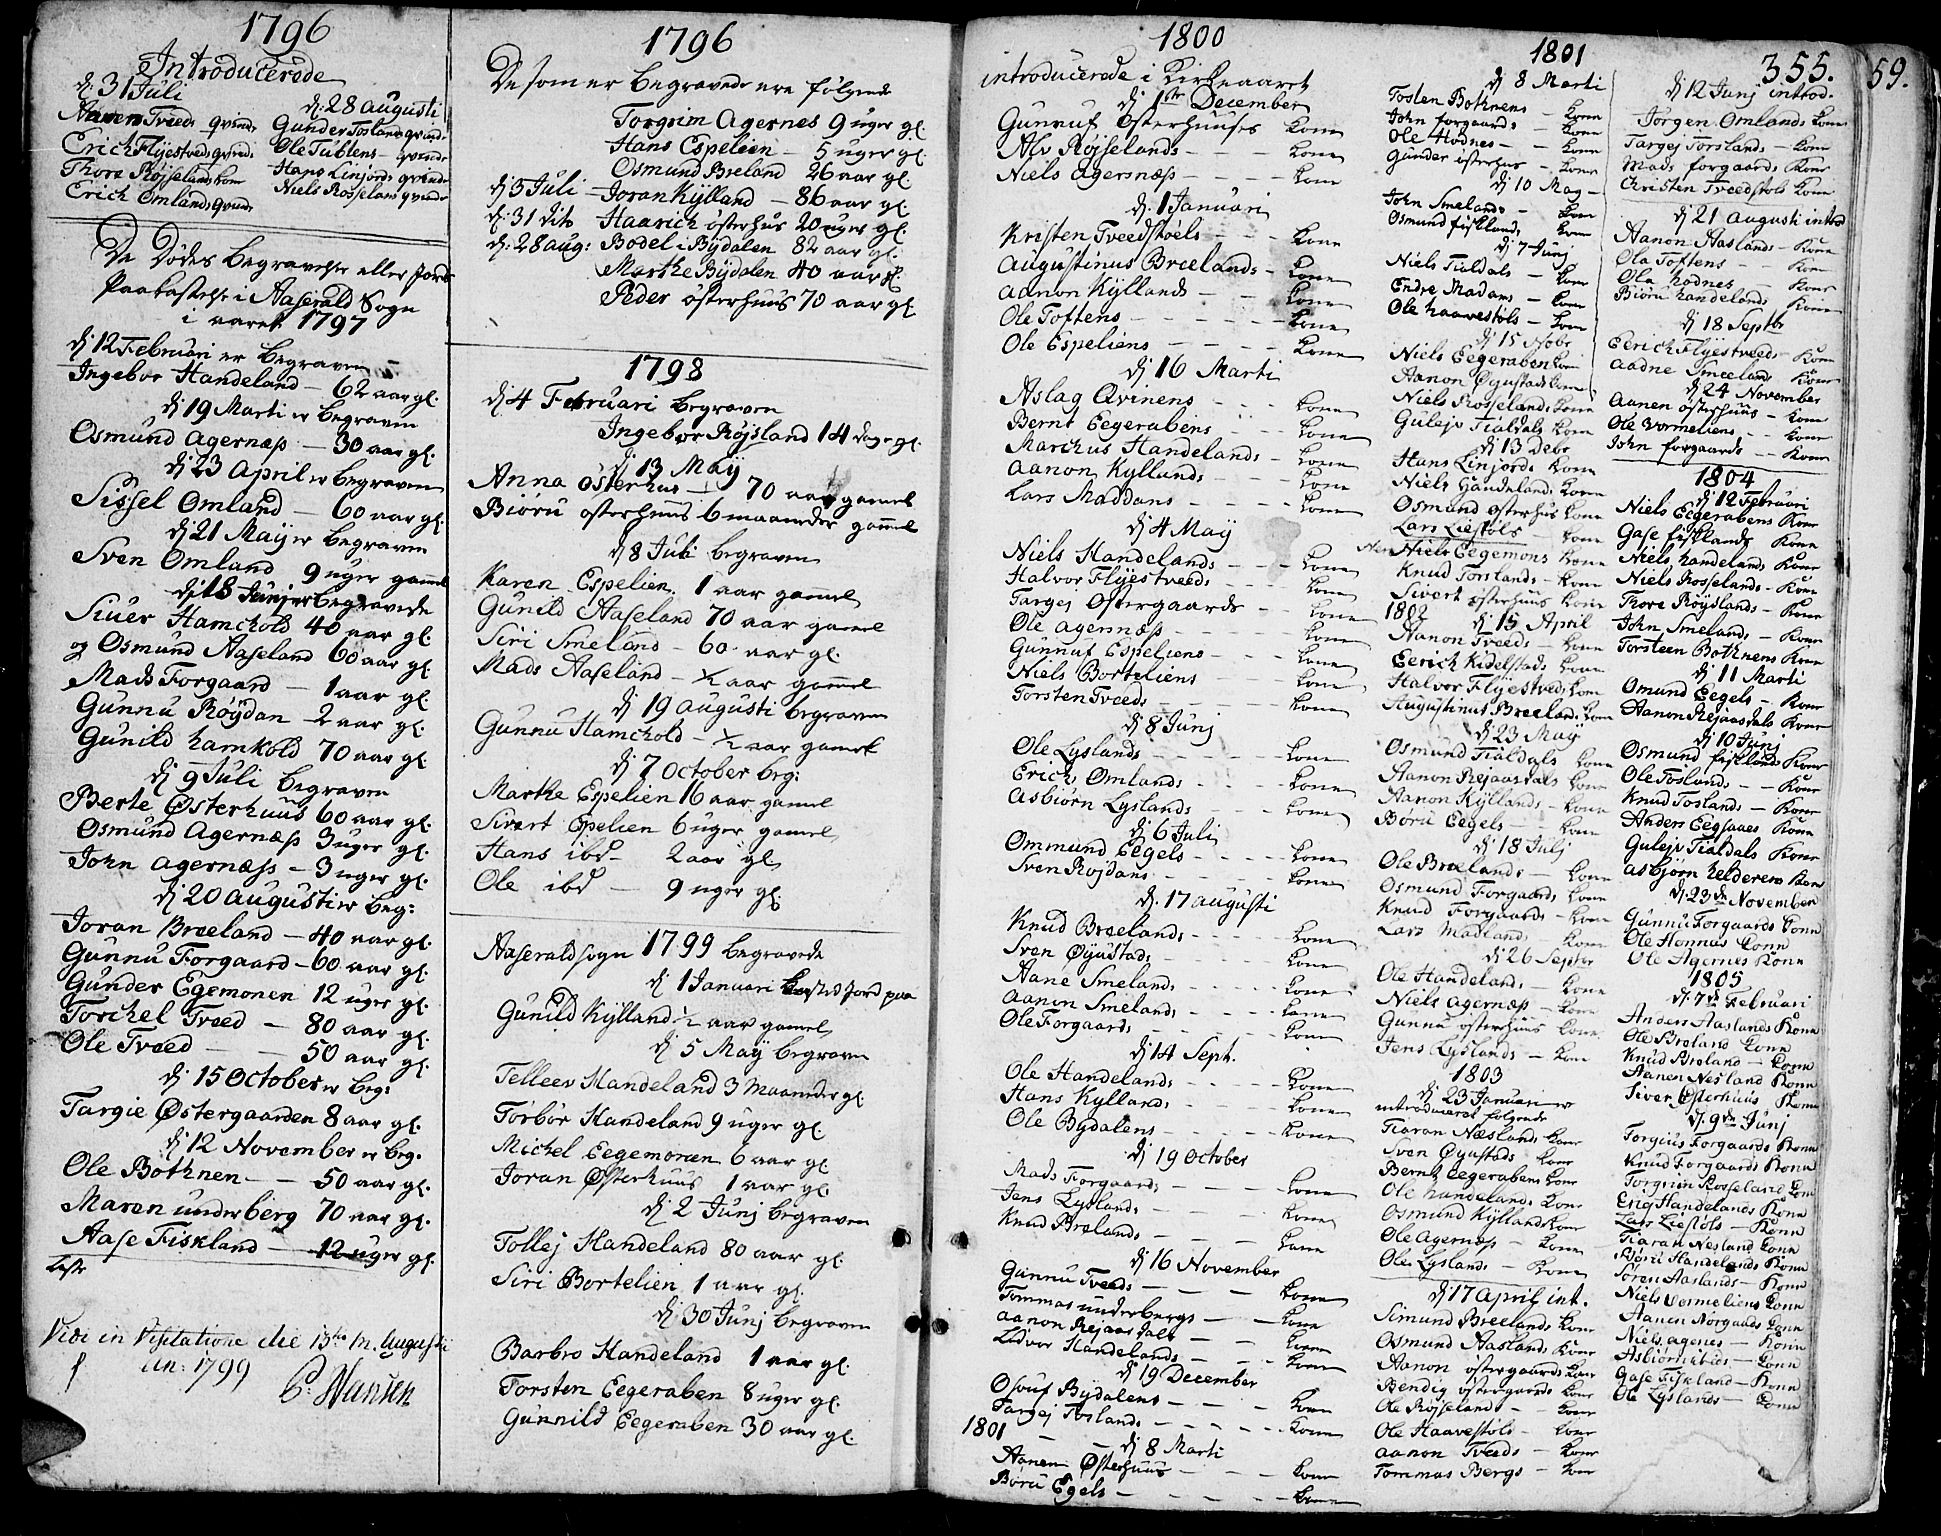 1796
Introducerede
dj: 31 Juli
Aanen Tveeds qvinde
Erich Flyestveds qvinde
Thore Røjselands kone
Erich Omlands qvinde
dj: 28 augusti
Gunder Toslands qvinde
Ole Tubtens - qvinde
Hans Linjords qvinde
Niels Rosselans qvinde
De Dødes Begravelse eller Jords
Paakastelse i Aaserald Sogn
i aaret 1797
dj 12 Februari er Begraven
Ingebor Handeland - 62 aar gl.
dj 19 Marti er begraven
Osmund Agernæss - 30 aar gl.
dj 23 April er begraven
Sissel Omland - 60 aar gl.
dj 21 Maij er begraven
Sven Omland 9 uger gamel
dj 18 Junj er begravede
Siuer Hamchold 40 aar gl.
og Osmund Aaseland 60 aar gl.
Mads Forgaard - 1 aar gl.
Gunnu Røydan - 2 aar gl.
Gunild hamkold 70 aar gl.
dj 9 Juli begraven
Berte Østerhuus 60 aar gl.
Osmund Agernæss 3 uger gl.
John agernæss - 3 uger gl.
dj 20 Augusti er beg:
Joran Breeland - 40 aar gl.
Gunnu Forgaard - 60 aar gl.
Gunder Egemonen 12 uger gl.
Torchel Tveed - 80 aar gl.
Ole Tveed - - 50 aar gl.
dj 15 October er beg:
Targie Østergaarden 8 aar gl.
dj 12 November er beg.
Ole Bothnen - - 50 aar gl.
Maren underberg 70 aar gl.
Aase Fiskland - 12 uger gl.
Vidi in Visitatione die 13tio M. Augustii
an: 1799
P. Hansen
1796
De som er begravede ere følgende
Torgrim Agernes 9 uger gl.
Hans Espelien - 5 uger gl.
Osmund Breland 26 aar gl.
dj 5 Juli - Joran Kylland - 86 aar gl.
dj: 31 dito Haarich østerhus 20 uger gl.
dj: 28 aug: Bodel i Bydalen 82 aar gl.
Marthe Bydalen 40 aar gl.
Peder østerhuus 70 aar gl.
1798
dj 4 Februari begraven
Ingebor Røjsland 14 dage gl.
dj 13 Maij
Anna østerhus - 70 aar gamel
Biøru østerhuus 6 maaneder gamel
dj 8 Juli begraven
Karen Espelien 1 aar gamel
Gunild Aaseland 70 aar gamel
Siri Smeland - 60 aar gl.
Mads Aaseland - ½ aar gamel
dj 19 augusti begraven
Gunnu Hamchold - ½ aar gamel
dj 7 October beg:
Marthe Espelien 16 aar gamel
Sivert Espelien 6 uger gamel
Hans ibd - 2 aar gl.
Ole ibd - 9 uger gl.
Aaserald sogn 1799 begravede
dj 1 Januari kasted Jord paa
Gunild Kylland ½ aar gamel
dj 5 Maij begraven
Telleev Handeland 3 Maaneder gl
Torbor Handeland 9 uger gl.
Michel Eegemonen 6 aar gl
Joran Østerhuus 1 aar gl.
dj 2 Junj begraven
Tollej Handeland 80 aar gl.
Siri Bortelien 1 aar gl.
dj 30 Junj begraven
Barbro Handeland 1 aar gl.
Torsten Eegeraben 8 uger gl.
Gunnild Eegeraben 30 aar gl.
1800
introducerede i Kirkeaaret
dj 1ste December
Gunnuf Østerhuuses kone
Alv Røjselands - - kone
Niels agernæss - - kone
dj. 1 Januari
Kristen Tveedstoels - - kone
Augustinus Breelands - kone
aanon Kyllands - - kone
Ole Toftens - - - kone
Ole Espeliens - - - kone
dj 16 Marti
Aslag Qvinens - - kone
Bernt Eegerabens - - kone
Marchus Handelands - kone
Aanon Kyllands - - kone
Lars Maddans - - - kone
dj 4 Maij
Niels Handelands - - - kone
Halvor Flyestveeds - - - kone
Targej Østergaards - - kone
Ole agernæss - - - kone
Gunnuf Espeliens - - - kone
Niels Borteliens - - - kone
Torsten Tveeds - - - kone
dj 8 Junj
Ole Lyslands - - - kone
Erich Omlands - - - kone
asbiørn Lyslands - - - kone
dj 6 Juli
Ommund Eegels - - - kone
Sven Røjdans - - - kone
dj. 17 augusti
Knud Breelands - - - kone
Sven Øyustads - - - kone
Aane Smelands - - - kone
aanon Smelands - - - kone
Ole Forgaards - - - kone
dj 14 Sept.
Ole Handelands - - - kone
Hans Kyllands - - - kone
Ole Bydalens - - - kone
dj 19 October
Mads Forgaards - - - kone
Jens Lyslands - - - kone
Knud Brelands - - - kone
dj 16 November
Gunnu Tveeds - - - kone
Tommas underbergs - - kone
aanon Rejaasdals - - kone
Lidvor Handelands - - kone
dj 19 December
Osouf Bydalens - - - kone
Targej Toslands - - - kone
1801 - - dj 8 Marti
Aanen Østerhuus - - - kone
Børu Egels - - - kone
1801
dj 8 Marti
Tosten Bothnens - kone
John forgaards - kone
Ole Hodnes - - kone
Gunder østerhus - kone
dj 10 Maj
John Smelands - kone
Osmund fisklands kone
dj 7 Junj
Niels Tialdals - kone
Endre Madans - kone
Ole haavestøls - kone
dj 15 Nobr
Niels Eegeraben kone
Aanon Øyustads kone
Niels Rosselands kone
Gulejv Tialdals kone
dj 13 Debr
Hans Linjords kone
Niels Handelands kone
Osmund østerhus kone
Lars Liestøls kone
Niels Eegemons kone
Knud Torslands - kone
Sivert østerhuus kone
1802 dj 15 April
Aanon Tveeds - kone
Eerich Kidelstads kone
Halvor Flyestveds kone
Augustinus Breeland. kone
dj 23 Maj
Osmund Tialdals kone
Aanon Rejaasdals kone
Aanon Kyllands - kone
Børu Eegels - kone
dj 18 Julj
Ole Breelands - kone
Osmund Forgaards kone
Knud Forgaards - kone
Lars Madlands - kone
dj 26 Septr
Ole Handelands - kone
Niels agernæss - kone
Gunnu østerhuus kone
Jens Lyslands - kone
1803
dj 23 Januari er
introduceret følgende
Tiaran Næslands kone
Sven Øyustads kone
Bernt Eegerabens kone
Ole handelands kone
Osmund Kyllands kone
Ole agernæss - kone
Ole Lyslands - kone
dj 17 April int.
Simund Breelands kone
Osmund Aaslands kone
Aanon østergaards kone
Bendig østergaards kone
Ole Røjselands - kone
Ole Haavestøls - kone
aanon Tveeds - kone
Tommas Bergs - kone
355.
dj 12 Junj introd.
Jørgen Omlands kone
Targej Torslands - kone
Mads forgaards kone
Christen Tveedstøls kone
dj 21 augusti introd
Aanon Aaslands - kone
Ola Toftens - kone
Ola hodnes - kone
Biøru handelands kone
dj 18 Septbr
Eerich Flyestveeds kone
aadne Smeelands kone
dj 24 November
aanen østerhuus - kone
Ole Vormeliens - - kone
John forgaards - kone
1804
dj 12 Februari
Niels Eegerabens kone
Gase fisklands kone
Niels handelands kone
Niels Rosselands - kone
Thore Røydlands - kone
John Smelands - kone
Torsteen Bothnens kone
dj 11 Marti
Omund Eegels - kone
Aanon Rejaasdals kone
dj 10 Junj
Osmund fisklands kone
Ole Toslands - - kone
Knud Toslands - kone
Anders Eegsaaes kone
Gulejv Tialdals kone
asbjørn helderens kone
dj 23de November
Gunnu Forgaards konn
Ole Honnas konn
Ole Agernes konn
1805
dj. 7de Februari
Anders Aaslands konn
Ole Breland konn
Knud Breland - konn
Aanen Nesland konn
Siver Østerhuus konn
dj. 9de Junj
Torgius Forgaards konn
Knud Forgaards konn
Torgrim Rosseland konn
Erig Handelands konn
Lars Liestøls - konn
Tiaran Nesland konn
Biøru Handelands konn
Søren Aaslands - konn
Niels Vermeliens konn
Aanen Norgaards konn
Niels agenes - konn
Asbiørn ibids - konn
Gase Fiskland - konn
Ole Lyslands - konn
59.